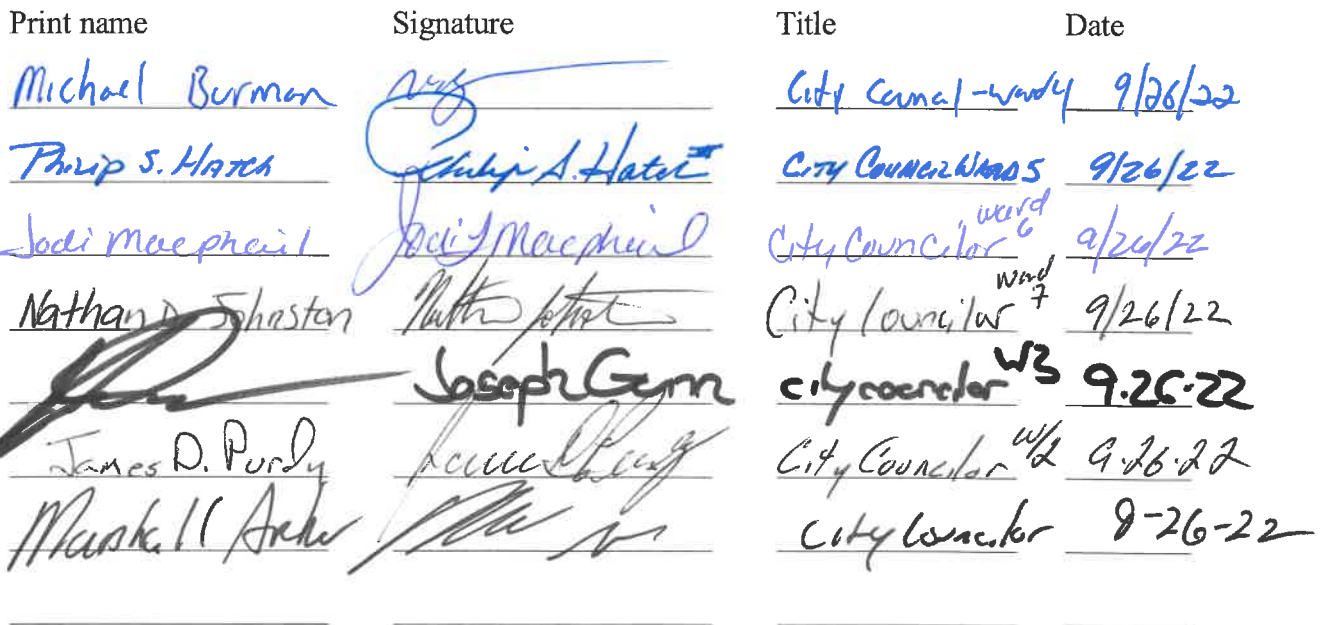 Print name Signature Title Date
Michael Burman City Council-ward 4 9/26/22
Philip S. Hatch Philip S. Hatch III City Council Ward 5 9/26/22
Jodi Macphail Jodi L Macphail City Councilor ward 6 9/26/22
Nathan D. Johnston City Councilor ward 7 9/26/22
Joseph Gunn city councilor W3 9.26.22
James D. Purdy James D Purdy City Councilor W/2 9.26.22
Marshall City Councilor 9-26-22